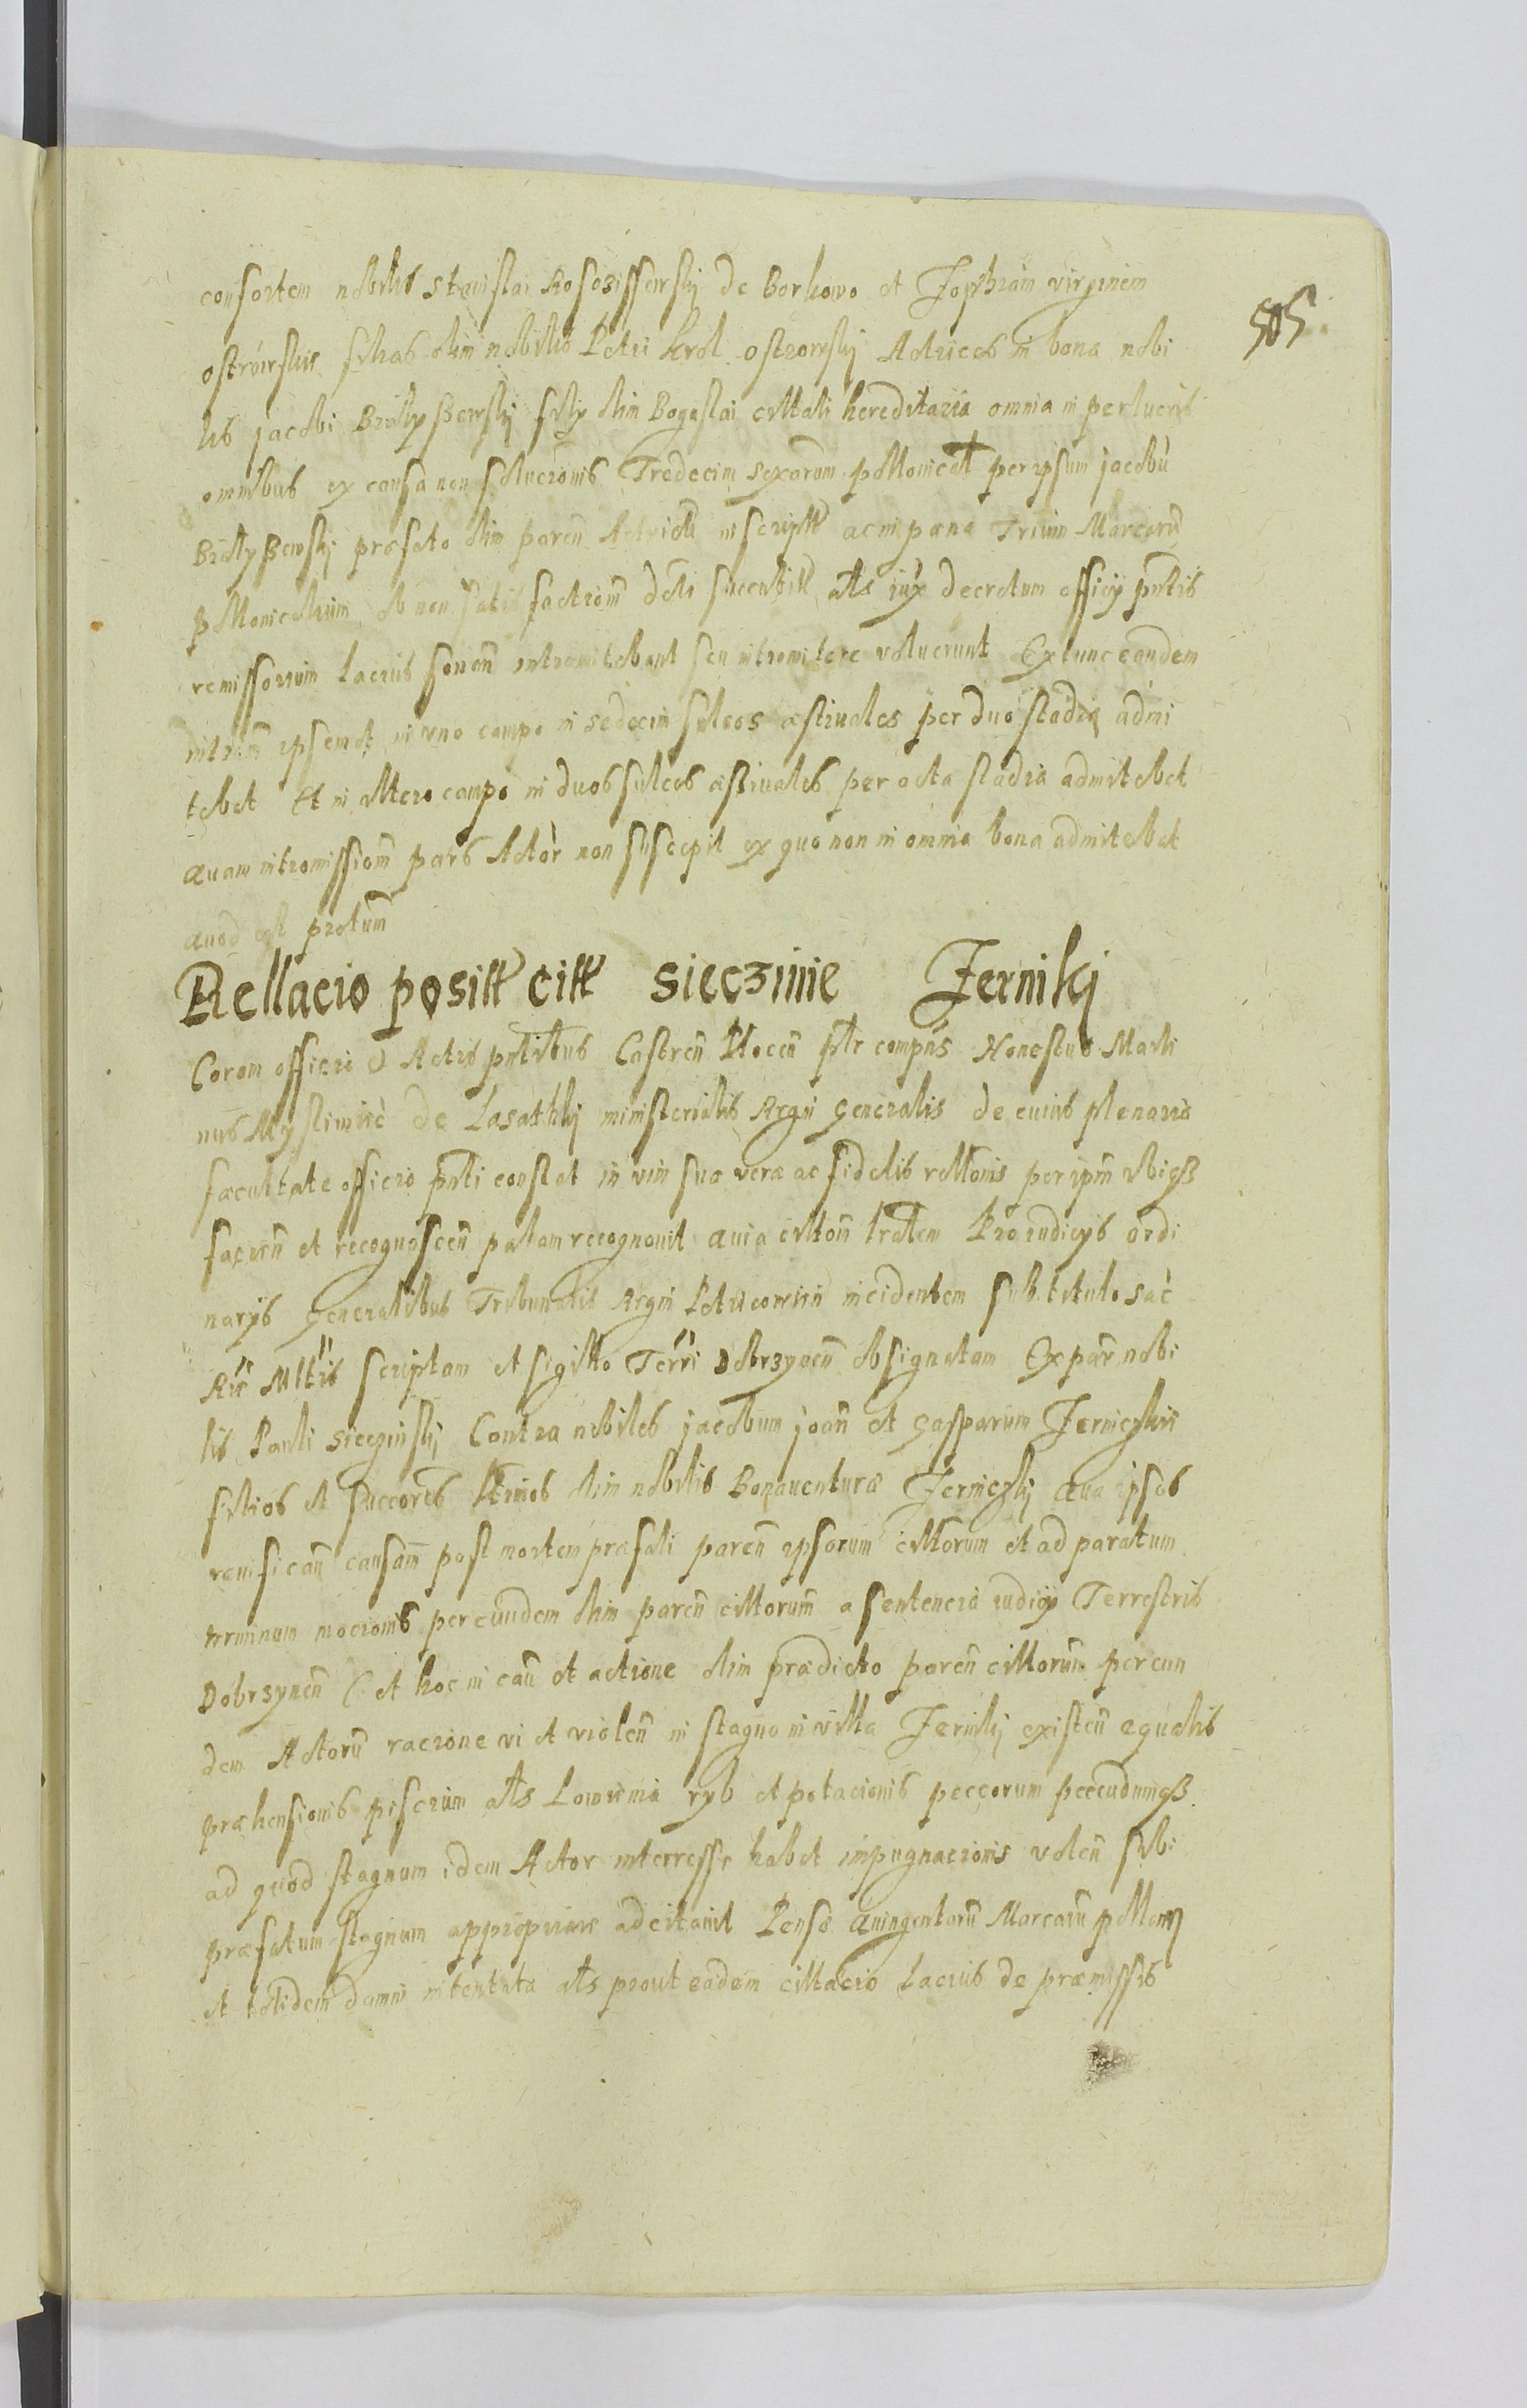 505
consortem nobilis Stanislai Rososissewskÿ de Borkowo et Zophiam virginem
ostrowskie filias olim nobilis Petri Krol ostrowskÿ Actrices in bona nobi
lis jacobi ßewskÿ filÿ olim Boguslai cittati hereditaria omnia in perlucris
omnibus ex causa non solucionis Tredecim sexarum pollonicał per ipsum jacobu
ßewskÿ præfato olim paren Actricu inscriptt ac in pæna Trium Marcaru
pollonicalium ob non satisfactiom dcti succubitt als iux decretum officÿ pntis
remissorium lacius sonan intromitebant seu intromitere voluerunt Extunc eandem
nitriam ipsemet in uno campo in sedecim sulcos æstiuales per duo stadia admi
tebat Et in altero campo in duos sulcos æstiuales per octa stadia admitebat
Quam intromissiom pars Actor non suscepit ex quo non in omnia bona admitebat
Quod est pratum
Rellacio positt citt Sieczinie Zernikj
Coram officio et Actis pntibus Castren Plocen ptr compns Honestus Marti
nus de Lasothkÿ ministerialis Regni generalis de cuius plenaria
facultate officio pnti constat in vim suæ veræ ac fidelis rellonis per ipm ibiqß
facien et recognoscen palam recognouit Quia cittom lratem Pro iudicÿs ordi
narÿs generalibus Tribunalis Regni Petricouien incidentem sub titulo sac
Rie Mttis scriptam et sigillo Terri Dobrzynen obsignatam Ex par nobi
lis Pauli Sieczinskÿ Contra nobiles jacobum joan et gasparum Zerniczkii
filios et succores ltimos olim nobilis Bonauenturæ Zerniczkÿ Qua ipsos
reuisican causam post mortem præfati paren ipsorum cittorum et ad paratum
terminum mocionis per eundem olim paren cittorum a sentencia iudicÿ Terrestris
Dobrzynen et hoc in cau et actione olim prædicto paren cittorum per eun
dem Actoru racione vi et violen in stagno in villa Zernikÿ existen equalis
præhensionis piscium als Lowienia ryb et potacionis peccorum peccudumqß
ad quod stagnum idem Actor interresse habet impugnacionis volen sibi
præfatum stagnum appropriare adcitauit Pense Quingentaru Marcaru pollon
et totidem damni intentata als prout eadem cittacio lacius de præmissis